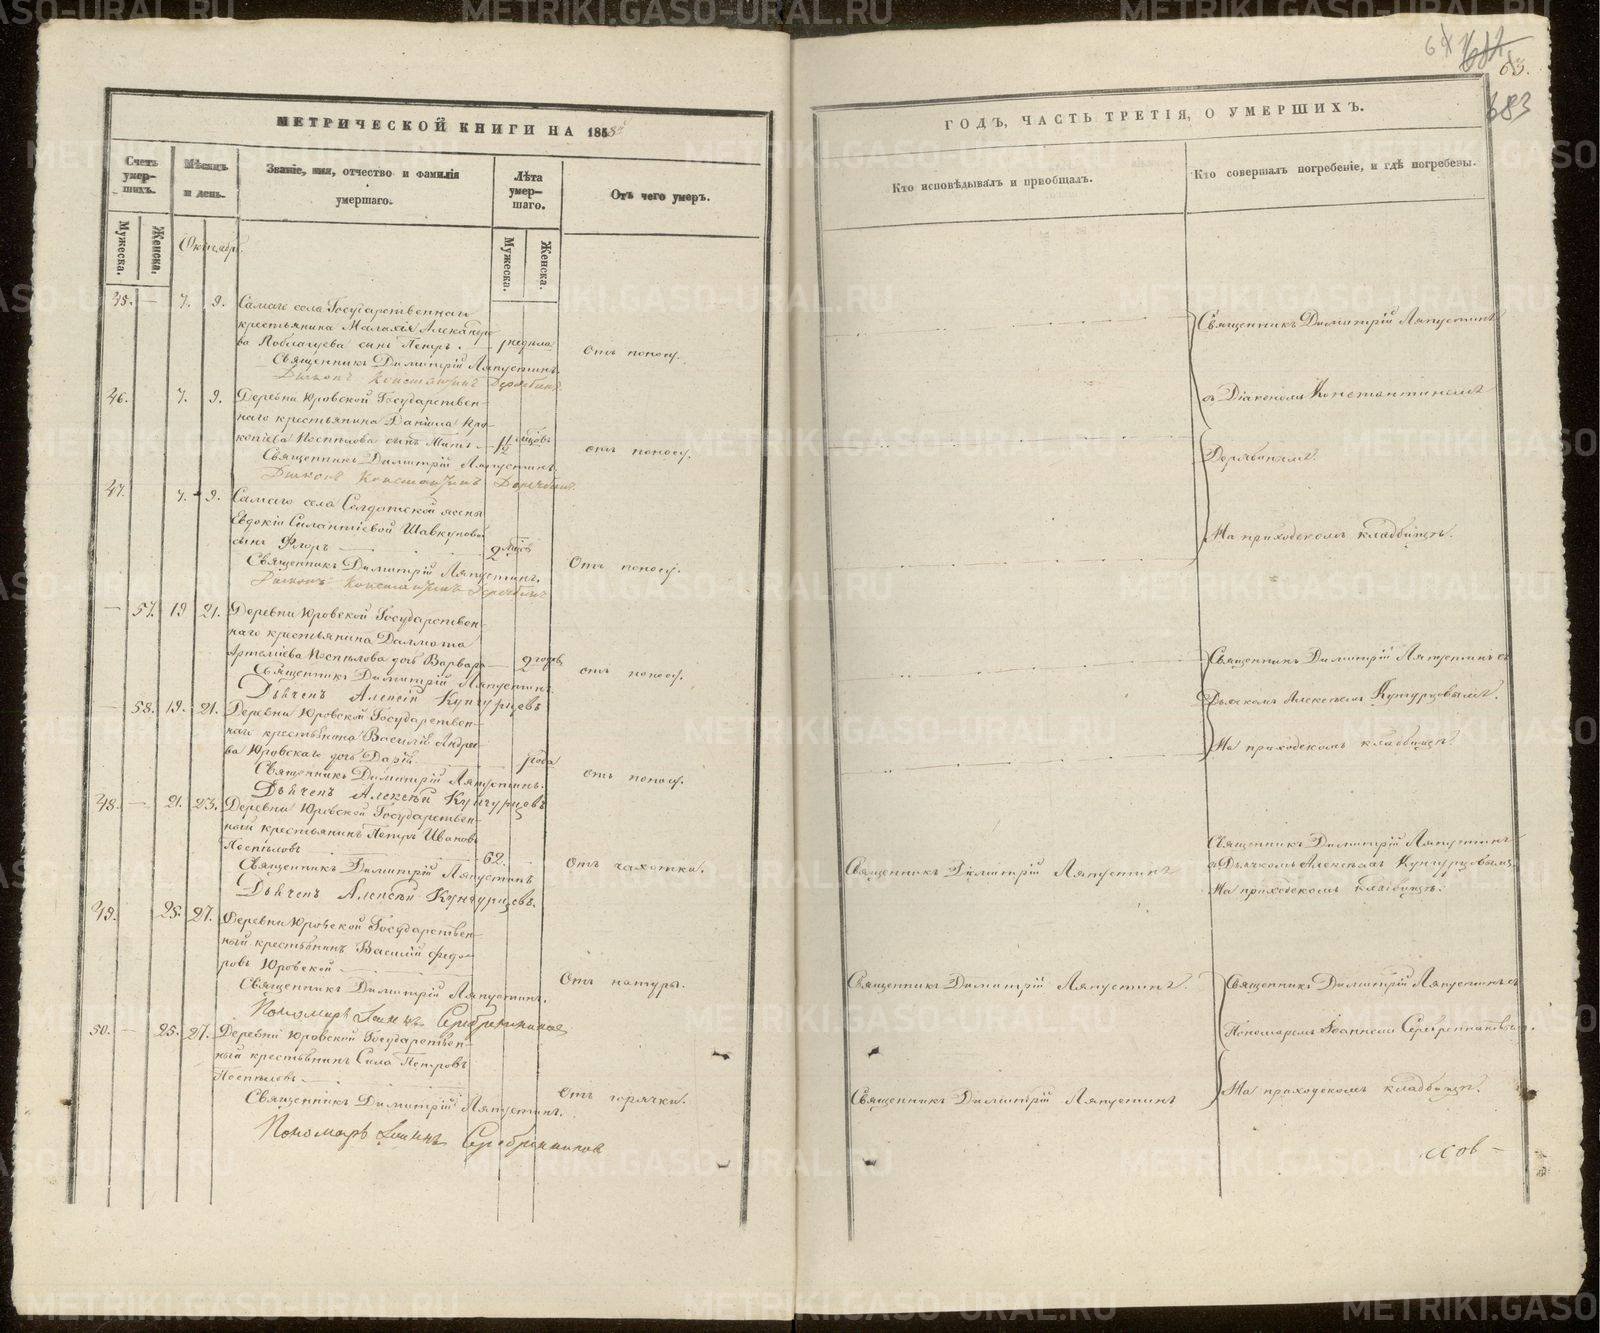 МЕТРИЧЕСКОЙ КНИГИ НА 185
Счетъ умерших.
Мѣсяцъ и день.
Званіе, имя, отчество и фамилія умершаго.
Лѣта умершаго.
Отъ чего умеръ.
Мужеска.
Женска.
Мужеска.
Женска.
Октябрь.
45. — 7. 9. Самаго села Государственнаго
крестьянина Малахія Александро
ва сынъ Петръ. недѣли
Отъ поносу.
Священникъ Димитрій Ляпустинъ.
Дьяконъ Константинъ
46. 7. 9. Деревни Юровской Государствен-
наго крестьянина Даніила Про-
копіева Поспѣлова сынъ
отъ поносу.
Священникъ Димитрій Ляпустинъ.
Дьяконъ Константинъ
47. 7. 9. Самаго села Солдатской жены
Евдокіи Силантіевой Шавкуновой
сынъ Флоръ 2
Отъ поносу.
Священникъ Димитрій Ляпустинъ.
Дьяконъ Константинъ
— 57. 19 21. Деревни Юровской Государствен-
наго крестьянина Далмата
Поспѣлова дочь Варвара 2 годъ
отъ поносу.
Священникъ Димитрій Ляпустинъ.
Дьячекъ Алексѣй Кунгурцевъ
— 58. 19. 21. Деревни Юровской Государствен-
наго крестьянина Василія Андрее
ва Юровскаго дочь Дарія года
отъ поносу.
Священникъ Димитрій Ляпустинъ.
Дьячекъ Алексѣй Кунгурцевъ
48. — 21. 23. Деревни Юровской Государствен-
ный крестьянинъ Петръ Ивановъ
Поспѣловъ 62.
Отъ чахотки.
Священникъ Димитрій Ляпустинъ
Дьячекъ Алексѣй Кунгурцевъ.
49. 25. 27. Деревни Юровской Государствен-
ный крестьянинъ Василій Федо-
ровъ Юровской
Отъ натуры.
Священникъ Димитрій Ляпустинъ.
Пономарь Іоаннъ Серебренниковъ
50. — 25. 27. Деревни Юровской Государствен-
ный крестьянинъ Сила Петровъ
Поспѣловъ
Отъ горячки.
Священникъ Димитрій Ляпустинъ.
Пономарь Іоаннъ Серебренниковъ
63.
683
ГОДЪ, ЧАСТЬ ТРЕТІЯ, О УМЕРШИХЪ.
Кто исповѣдывалъ и пріобщалъ.
Кто совершалъ погребеніе, и гдѣ погребены.
Священникъ Димитрій Ляпустинъ
съ Діакономъ Константиномъ
На приходскомъ кладбищѣ.
Священникъ Димитрій Ляпустинъ съ
Дьячкомъ Алексѣемъ Кунгурцовымъ.
На приходскомъ кладбищѣ.
Священникъ Димитрій Ляпустинъ
Священникъ Димитрій Ляпустинъ
съ Дьячкомъ Алексѣемъ Кунгурцовымъ
На приходскомъ кладбищѣ.
Священникъ Димитрій Ляпустинъ.
Священникъ Димитрій Ляпустинъ съ
Пономаремъ Іоанномъ Серебренниковымъ.
Священникъ Димитрій Ляпустинъ
На приходскомъ кладбищѣ.
METRIKI.GASO-URAL.RU